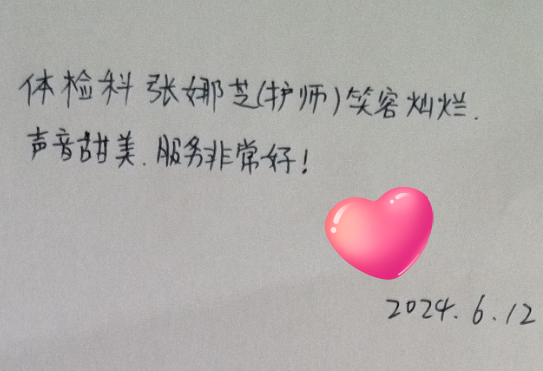 体检科 张娜芝(护师)笑容灿烂.
声音甜美.服务非常好!
2024.6.12